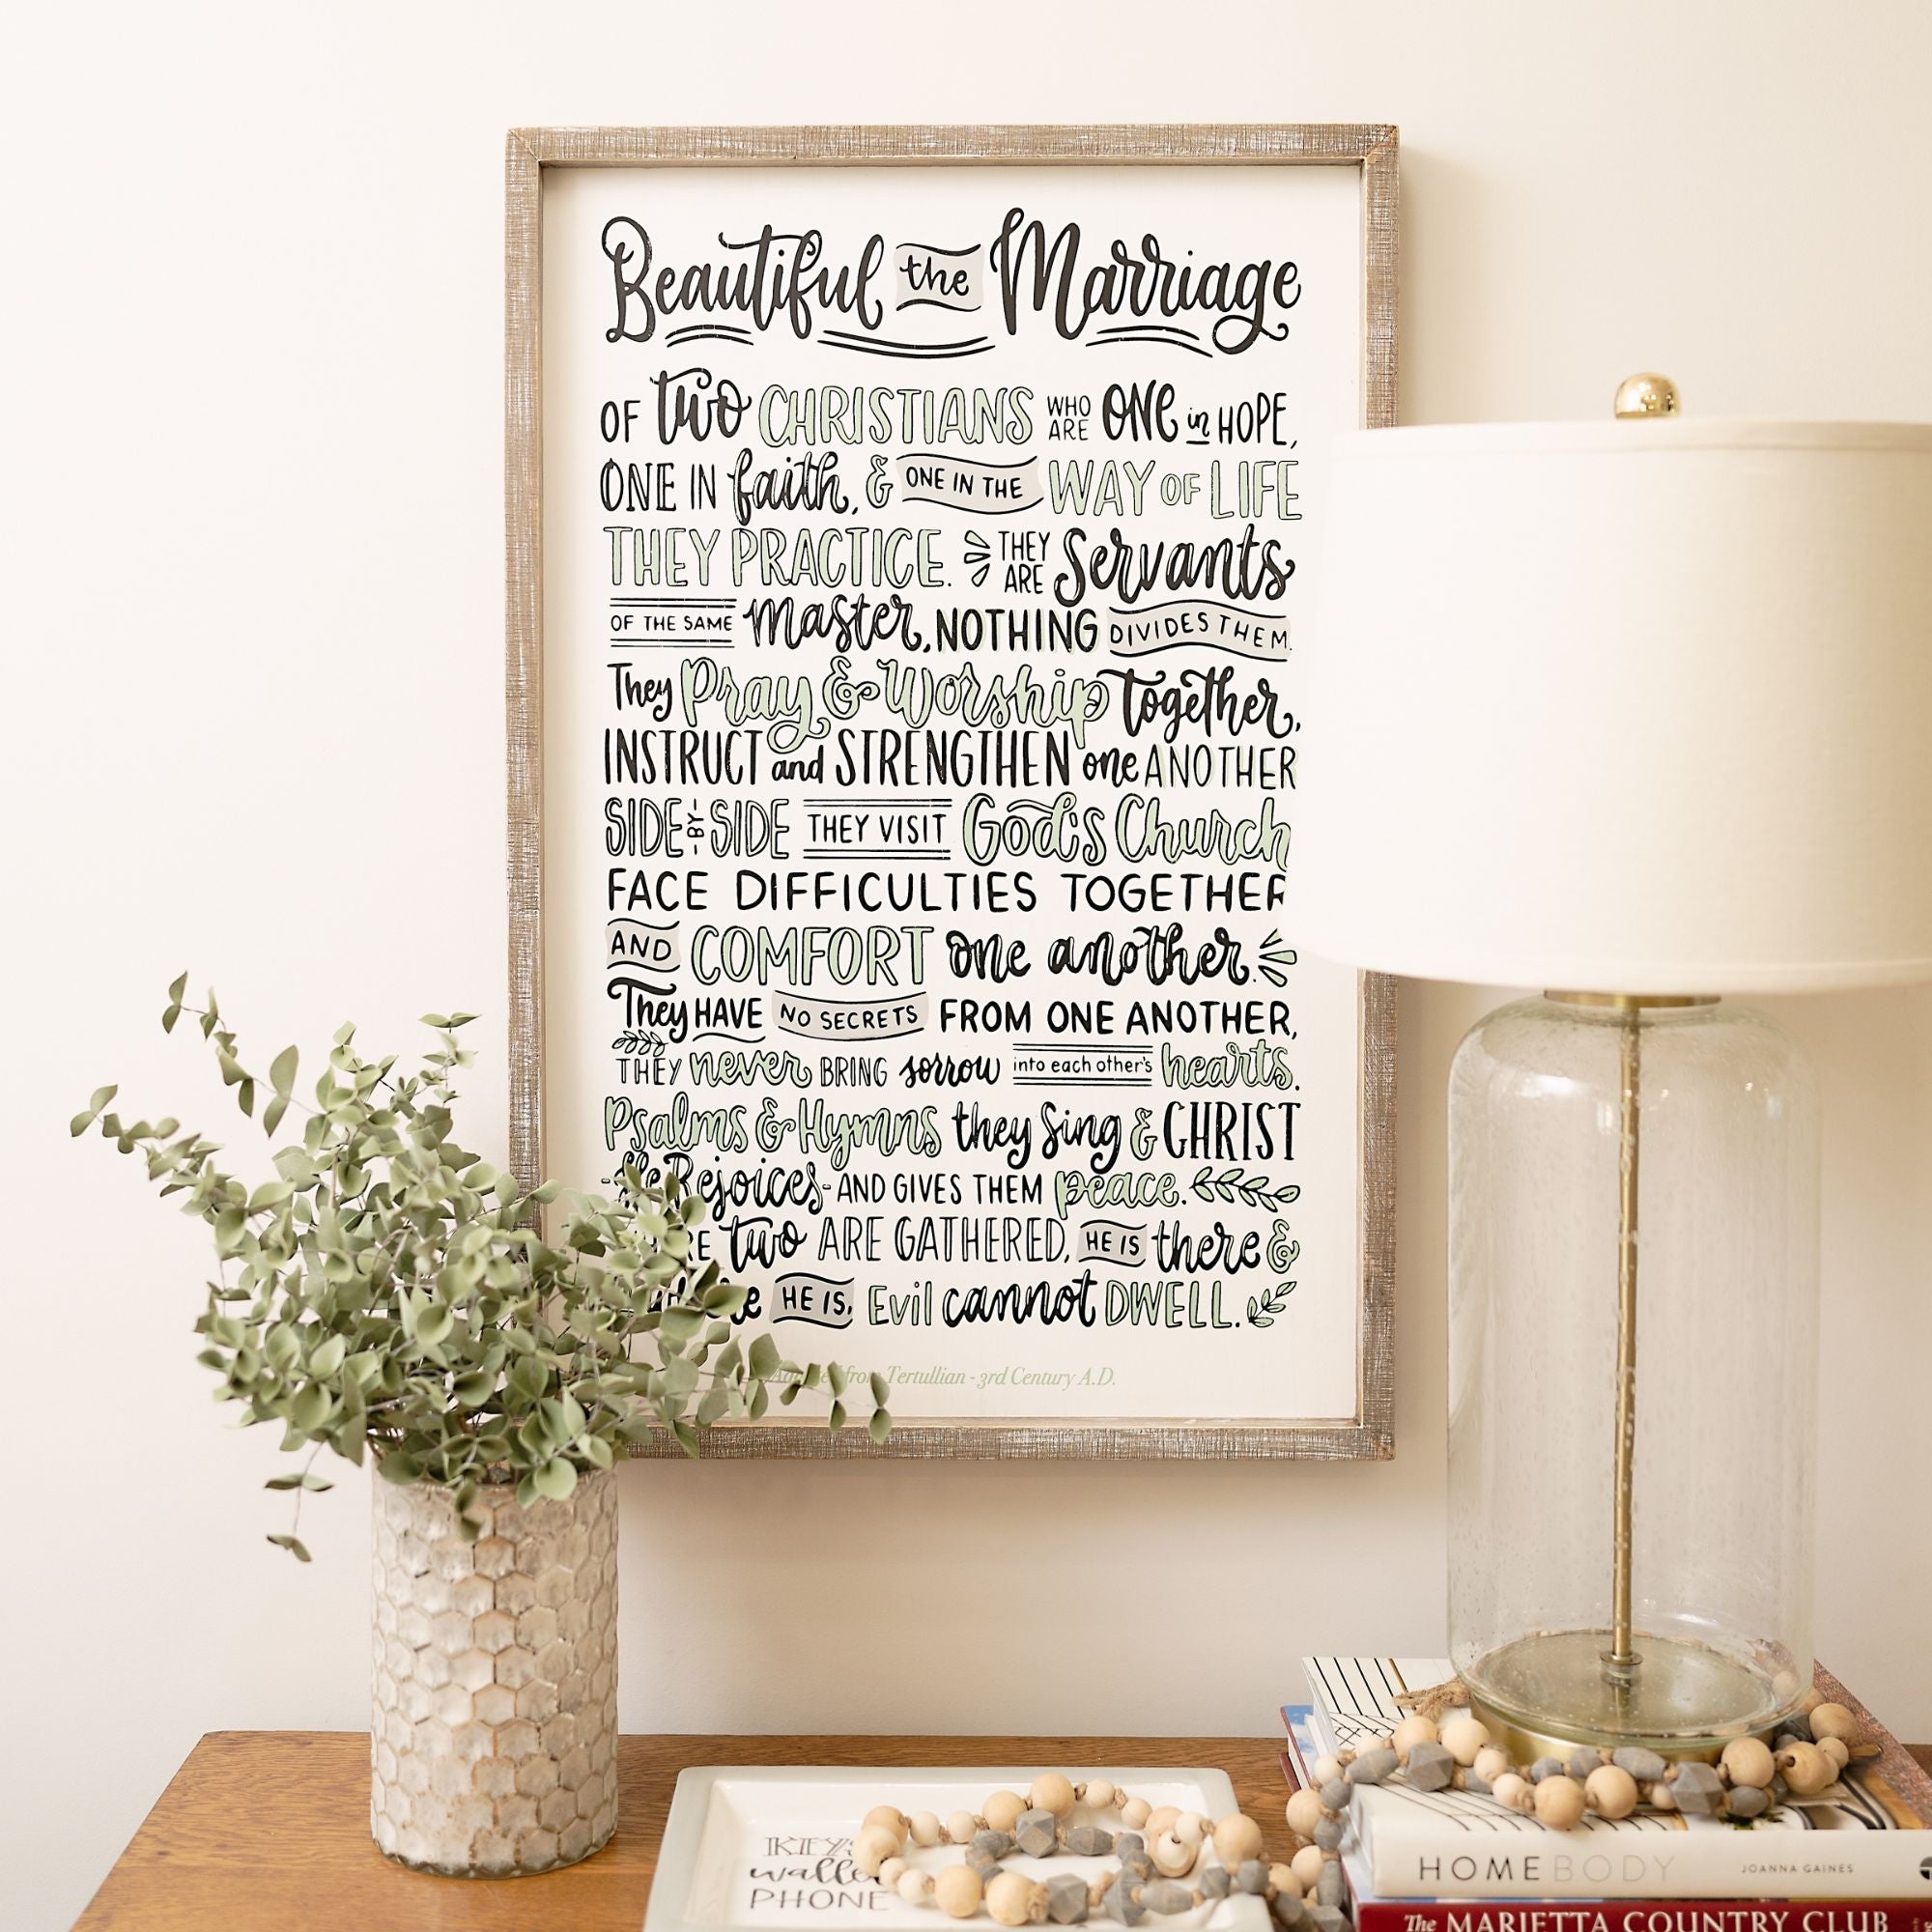 Beautiful the Marriage
OF two CHRISTIANS WHO ARE ONE in HOPE,
ONE IN faith, & ONE IN THE WAY OF LIFE
THEY PRACTICE. THEY ARE Servants
OF THE SAME Master, NOTHING DIVIDES THEM.
They Pray & Worship together,
INSTRUCT and STRENGTHEN one ANOTHER
SIDE BY SIDE THEY VISIT God's Church
FACE DIFFICULTIES TOGETHER
AND COMFORT one another.
They HAVE NO SECRETS FROM ONE ANOTHER,
THEY never BRING sorrow into each other's hearts.
Psalms & Hymns they Sing & CHRIST
-He Rejoices- AND GIVES THEM peace.
two ARE GATHERED, HE IS there &
HE IS, Evil cannot DWELL.
from Tertullian - 3rd Century A.D.
KEYS
wallet
PHONE
HOMEBODY JOANNA GAINES
The MARIETTA COUNTRY CLUB